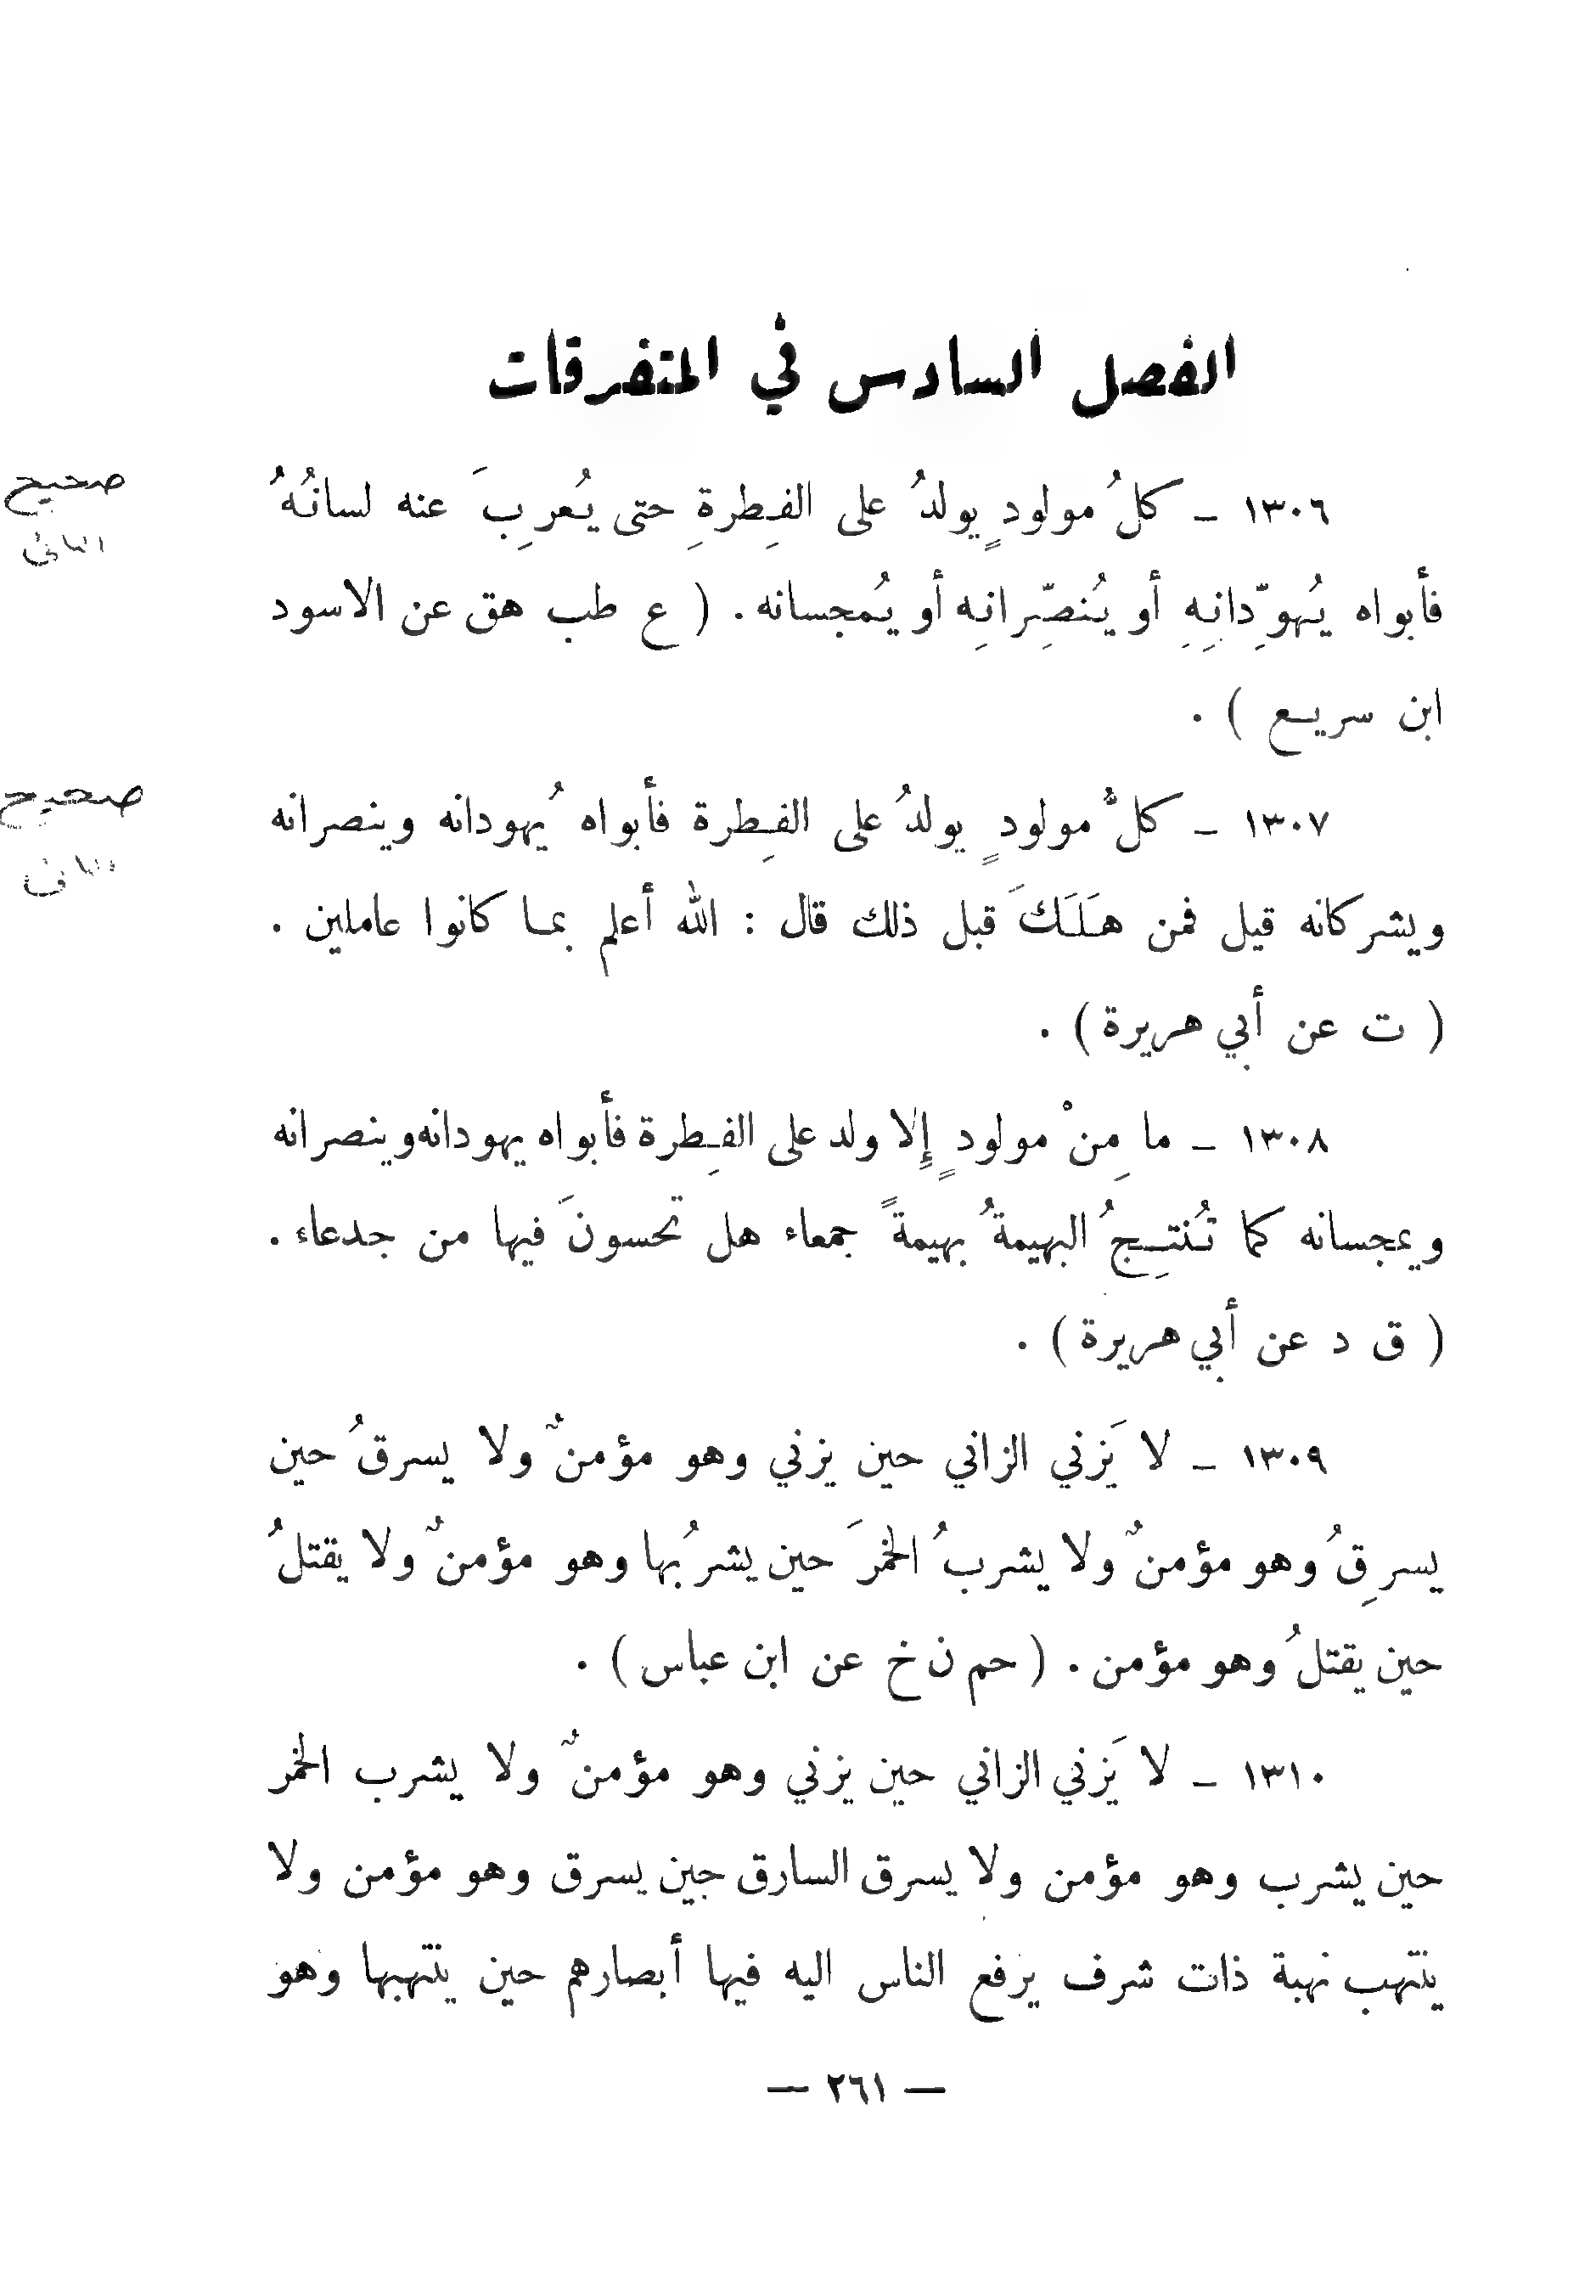 الفصل السادس في المتفرقات
١٣٠٦ – كلُ مولودٍ يولدُ على الفِطرةِ حتى يُعرِبَ عنه لسانُهُ
صحيح
فأبواه يُهوِّدانِهِ أو يُنصِّرانِه أو يُمجسانه . ( ع طب هق عن الاسود
ابن سريع ) .
١٣٠٧ – كلُّ مولودٍ يولدُ على الفِطرة فأبواه يُهودانه وينصرانه
صحيح
ويشركانه قيل فمن هَلَكَ قبل ذلك قال : الله أعلم بما كانوا عاملين .
( ت عن أبي هريرة ) .
١٣٠٨ – ما مِنْ مولودٍ إِلا ولد على الفِطرة فأبواه يهودانه وينصرانه
ويمجسانه كما تُنتِجُ البهيمةُ بهيمةً جمعاء هل تحسونَ فيها من جدعاء .
( ق د عن أبي هريرة ) .
١٣٠٩ – لا يَزني الزاني حين يزني وهو مؤمنٌ ولا يسرقُ حين
يسرِقُ وهو مؤمنٌ ولا يشربُ الخمرَ حين يشرُبها وهو مؤمنٌ ولا يقتلُ
حين يقتلُ وهو مؤمن . ( حم ن خ عن ابن عباس ) .
١٣١٠ – لا يَزني الزاني حين يزني وهو مؤمنٌ ولا يشرب الخمر
حين يشرب وهو مؤمن ولا يسرق السارق جين يسرق وهو مؤمن ولا
ينتهب نهبة ذات شرف يرفع الناس اليه فيها أبصارهم حين ينتهبها وهو
— ٢٦١ —